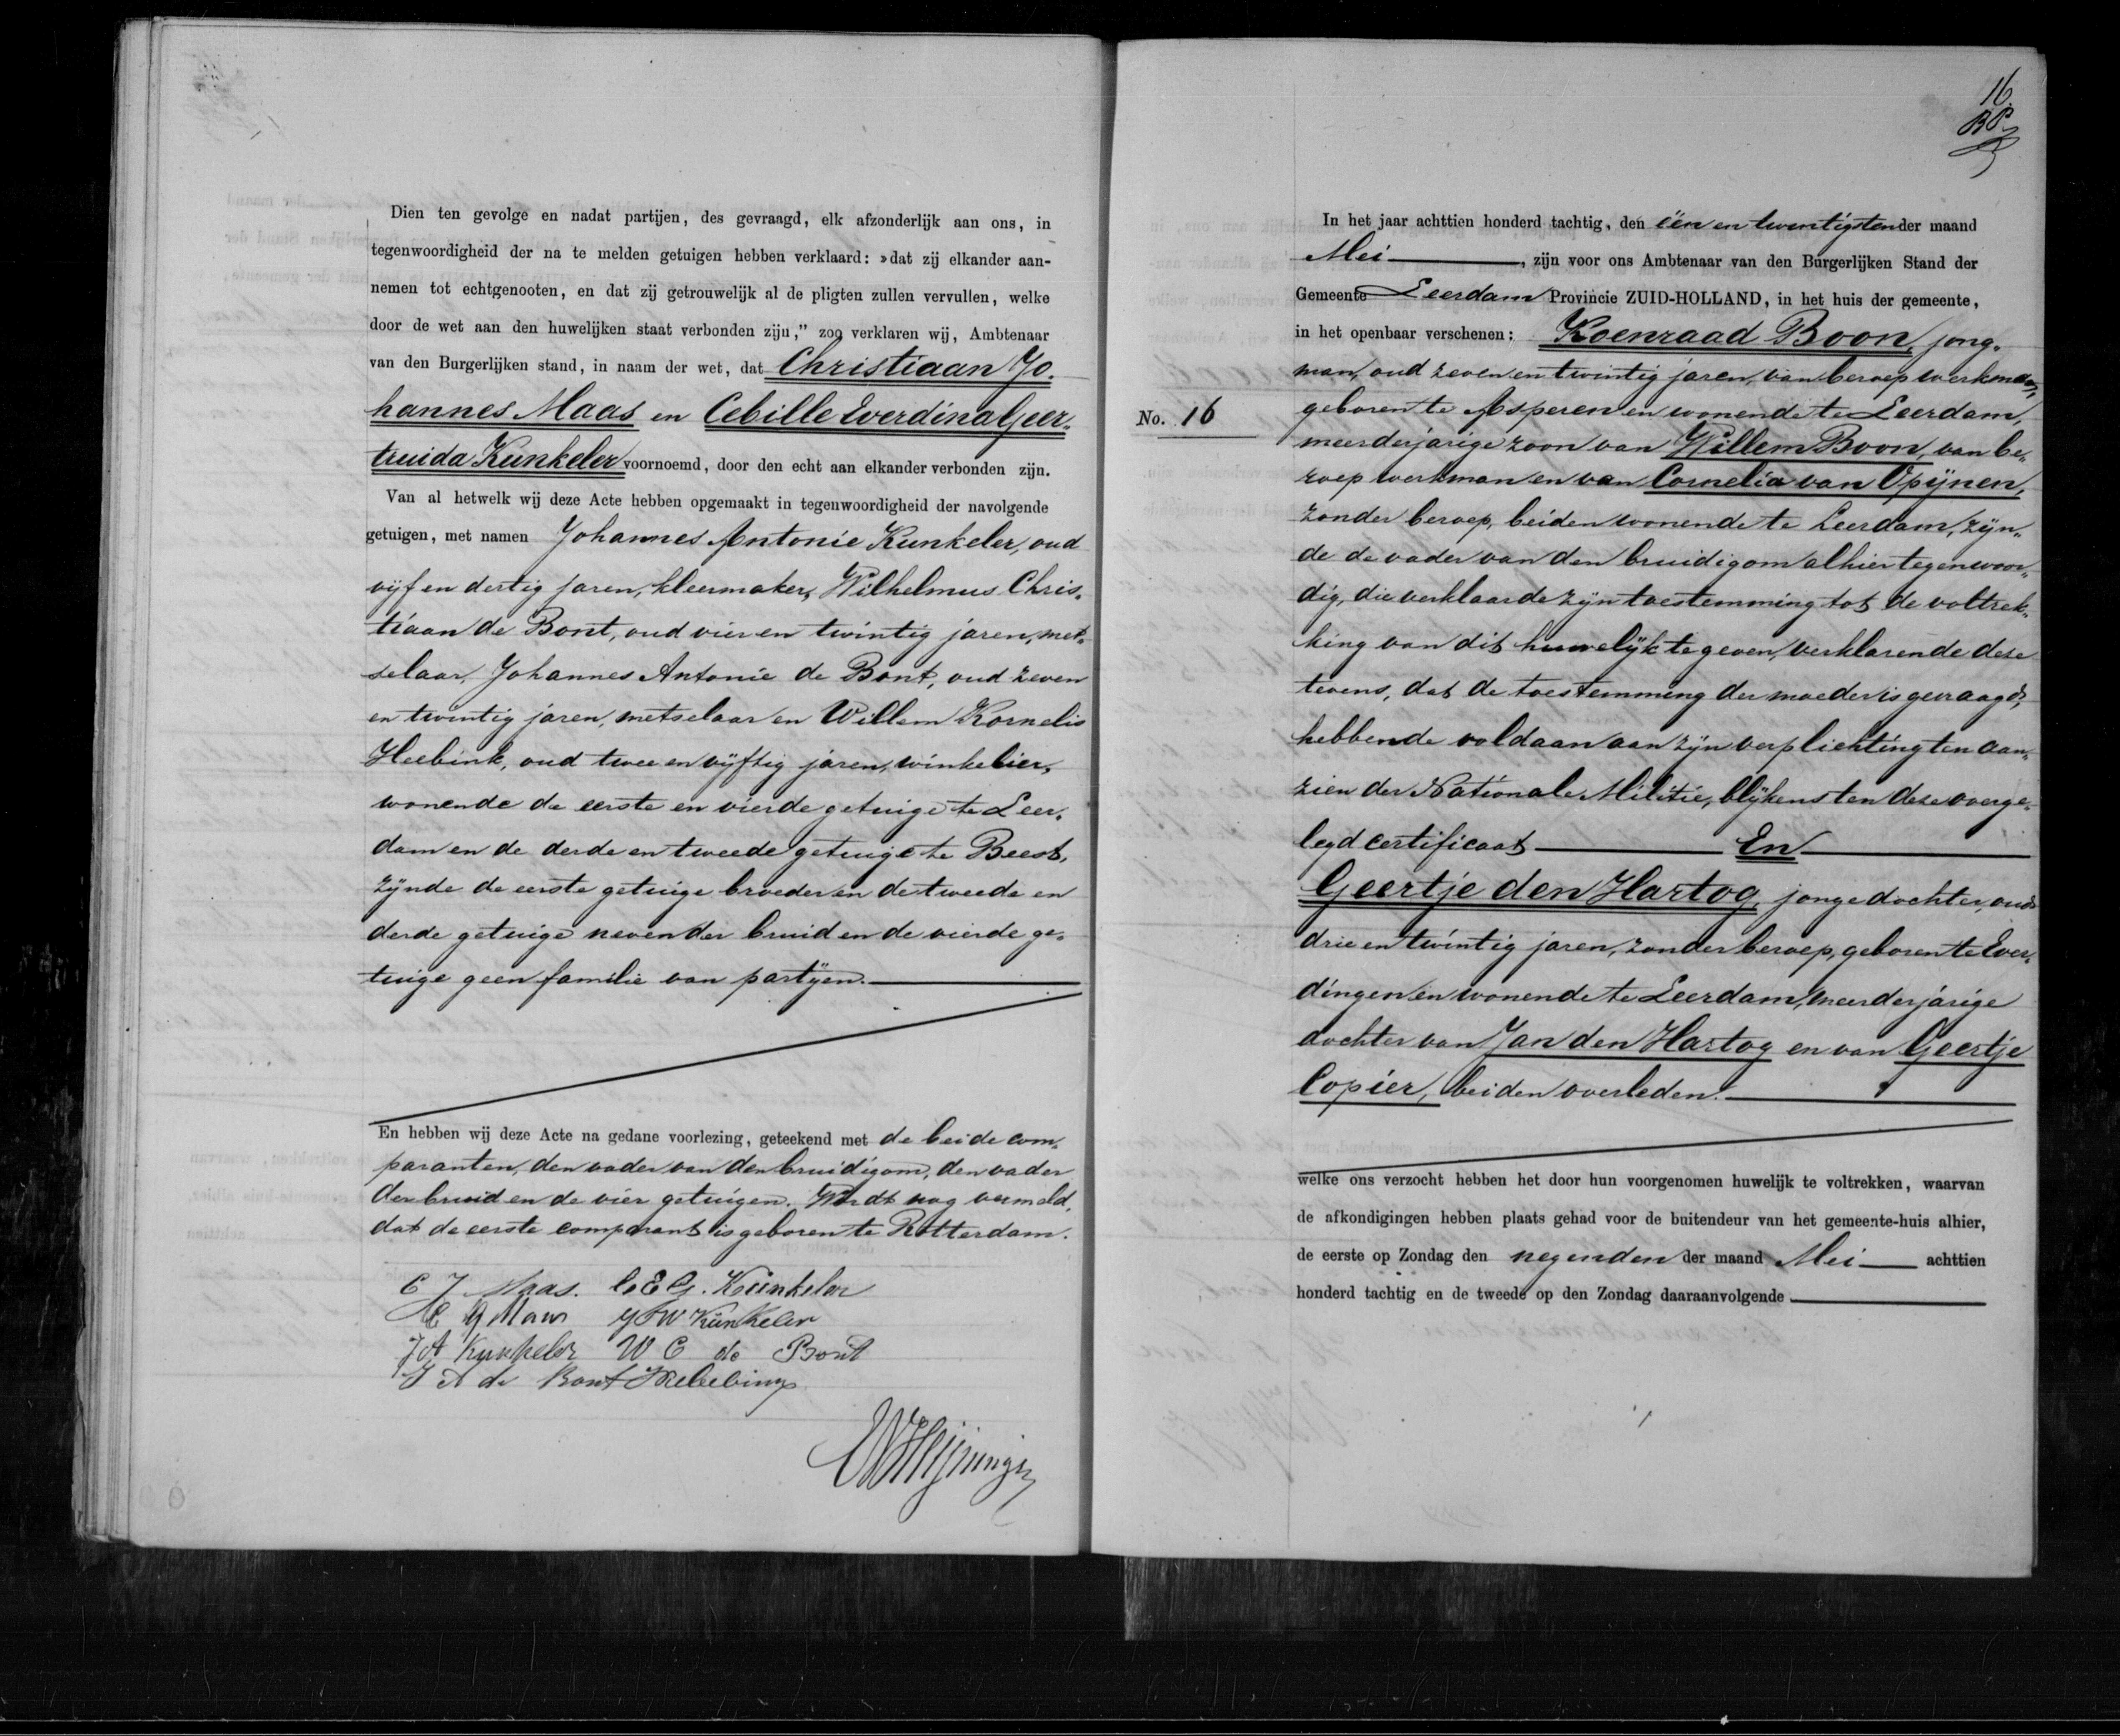 Dien ten gevolge en nadat partijen, des gevraagd, elk afzonderlijk aan ons, in
tegenwoordigheid der na te melden getuigen hebben verklaard: »dat zij elkander aan-
nemen tot echtgenooten, en dat zij getrouwelijk al de pligten zullen vervullen, welke
door de wet aan den huwelijken staat verbonden zijn,” zoo verklaren wij, Ambtenaar
van den Burgerlijken stand, in naam der wet, dat Christiaan Jo„
hannes Maas en Cebille Everdina Geer„
truida Kunkeler voornoemd, door den echt aan elkander verbonden zijn.
Van al hetwelk wij deze Acte hebben opgemaakt in tegenwoordigheid der navolgende
getuigen, met namen Johannes Antonie Kunkeler, oud
vijf en dertig jaren, kleermaker, Wilhelmus Chris„
tiaan de Bont, oud vier en twintig jaren, met„
selaar, Johannes Antonie de Bont, oud zeven
en twintig jaren, metselaar en Willem Kornelis
Heebink, oud twee en vijftig jaren, winkelier,
wonende de eerste en vierde getuige te Leer„
dam en de derde en tweede getuige te Beest,
zijnde de eerste getuige broeder en de tweede en
derde getuige neven der bruid en de vierde ge„
tuige geen familie van partijen.
En hebben wij deze Acte na gedane voorlezing, geteekend met de beide com„
paranten, den vader van den bruidigom, den vader
der bruid en de vier getuigen. Wordt nog vermeld,
dat de eerste comparant is geboren te Rotterdam.
C J Maas. C. E G. Kunkeler
Maas Kunkeler
J A Kunkeler W C de Bont
J A de Bont
16
No. 16
In het jaar achttien honderd tachtig, den één en twintigsten der maand
Mei, zijn voor ons Ambtenaar van den Burgerlijken Stand der
Gemeente Leerdam Provincie ZUID-HOLLAND, in het huis der gemeente,
in het openbaar verschenen: Koenraad Boon, jong„
man, oud zeven en twintig jaren, van beroep werkman,
geboren te Asperen en wonende te Leerdam,
meerderjarige zoon van Willem Boon, van be„
roep werkman en van Cornelia van Opijnen,
zonder beroep, beiden wonende te Leerdam, zijn„
de de vader van den bruidigom alhier tegenwoor„
dig, die verklaarde zijn toestemming tot de voltrek„
king van dit huwelijk te geven, verklarende deze
tevens, dat de toestemming der moeder is gevraagd,
hebbende voldaan aan zijn verplichting ten aan„
zien der Nationale Militie, blijkens ten deze overge„
legd certificaat En
Geertje den Hartog, jonge dochter, oud
drie en twintig jaren, zonder beroep, geboren te Ever„
dingen en wonende te Leerdam, meerderjarige
dochter van Jan den Hartog en van Geertje
Copier, beiden overleden.
welke ons verzocht hebben het door hun voorgenomen huwelijk te voltrekken, waarvan
de afkondigingen hebben plaats gehad voor de buitendeur van het gemeente-huis alhier,
de eerste op Zondag den negenden der maand Mei achttien
honderd tachtig en de tweede op den Zondag daaraanvolgende